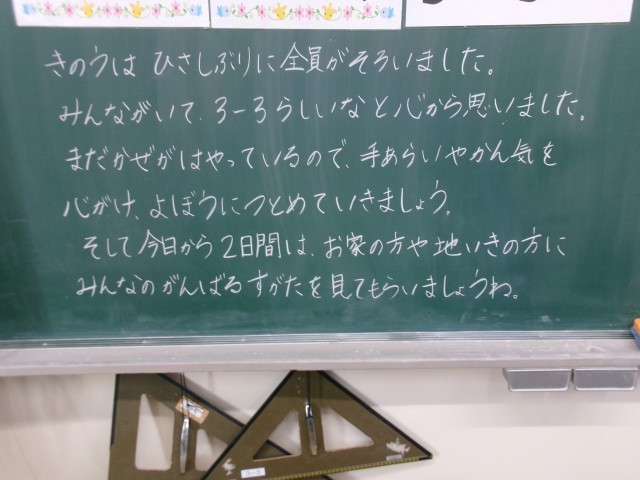 きのうは ひさしぶりに全員がそろいました。
みんながいて、3ー3らしいなと心から思いました。
まだかぜがはやっているので、手あらいやかん気を
心がけ、よぼうにつとめていきましょう。
そして今日から2日間は、お家の方や地いきの方に
みんなのがんばるすがたを見てもらいましょうね。